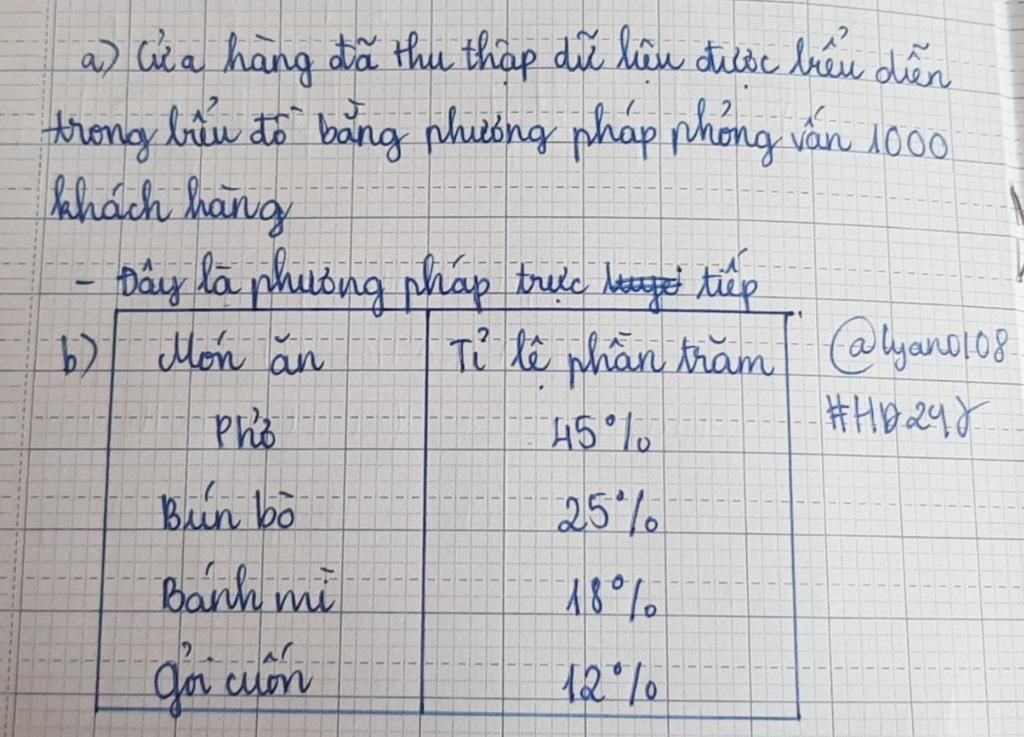 a) Cửa hàng đã thu thập dữ liệu được biểu diễn
trong biểu đồ bằng phương pháp phỏng vấn 1000
khách hàng
- Đây là phương pháp trực tiếp
b) Món ăn Tỉ lệ phần trăm @lyano108
Phở 45% #HĐ247
Bún bò 25%
Bánh mì 18%
Gỏi cuốn 12%